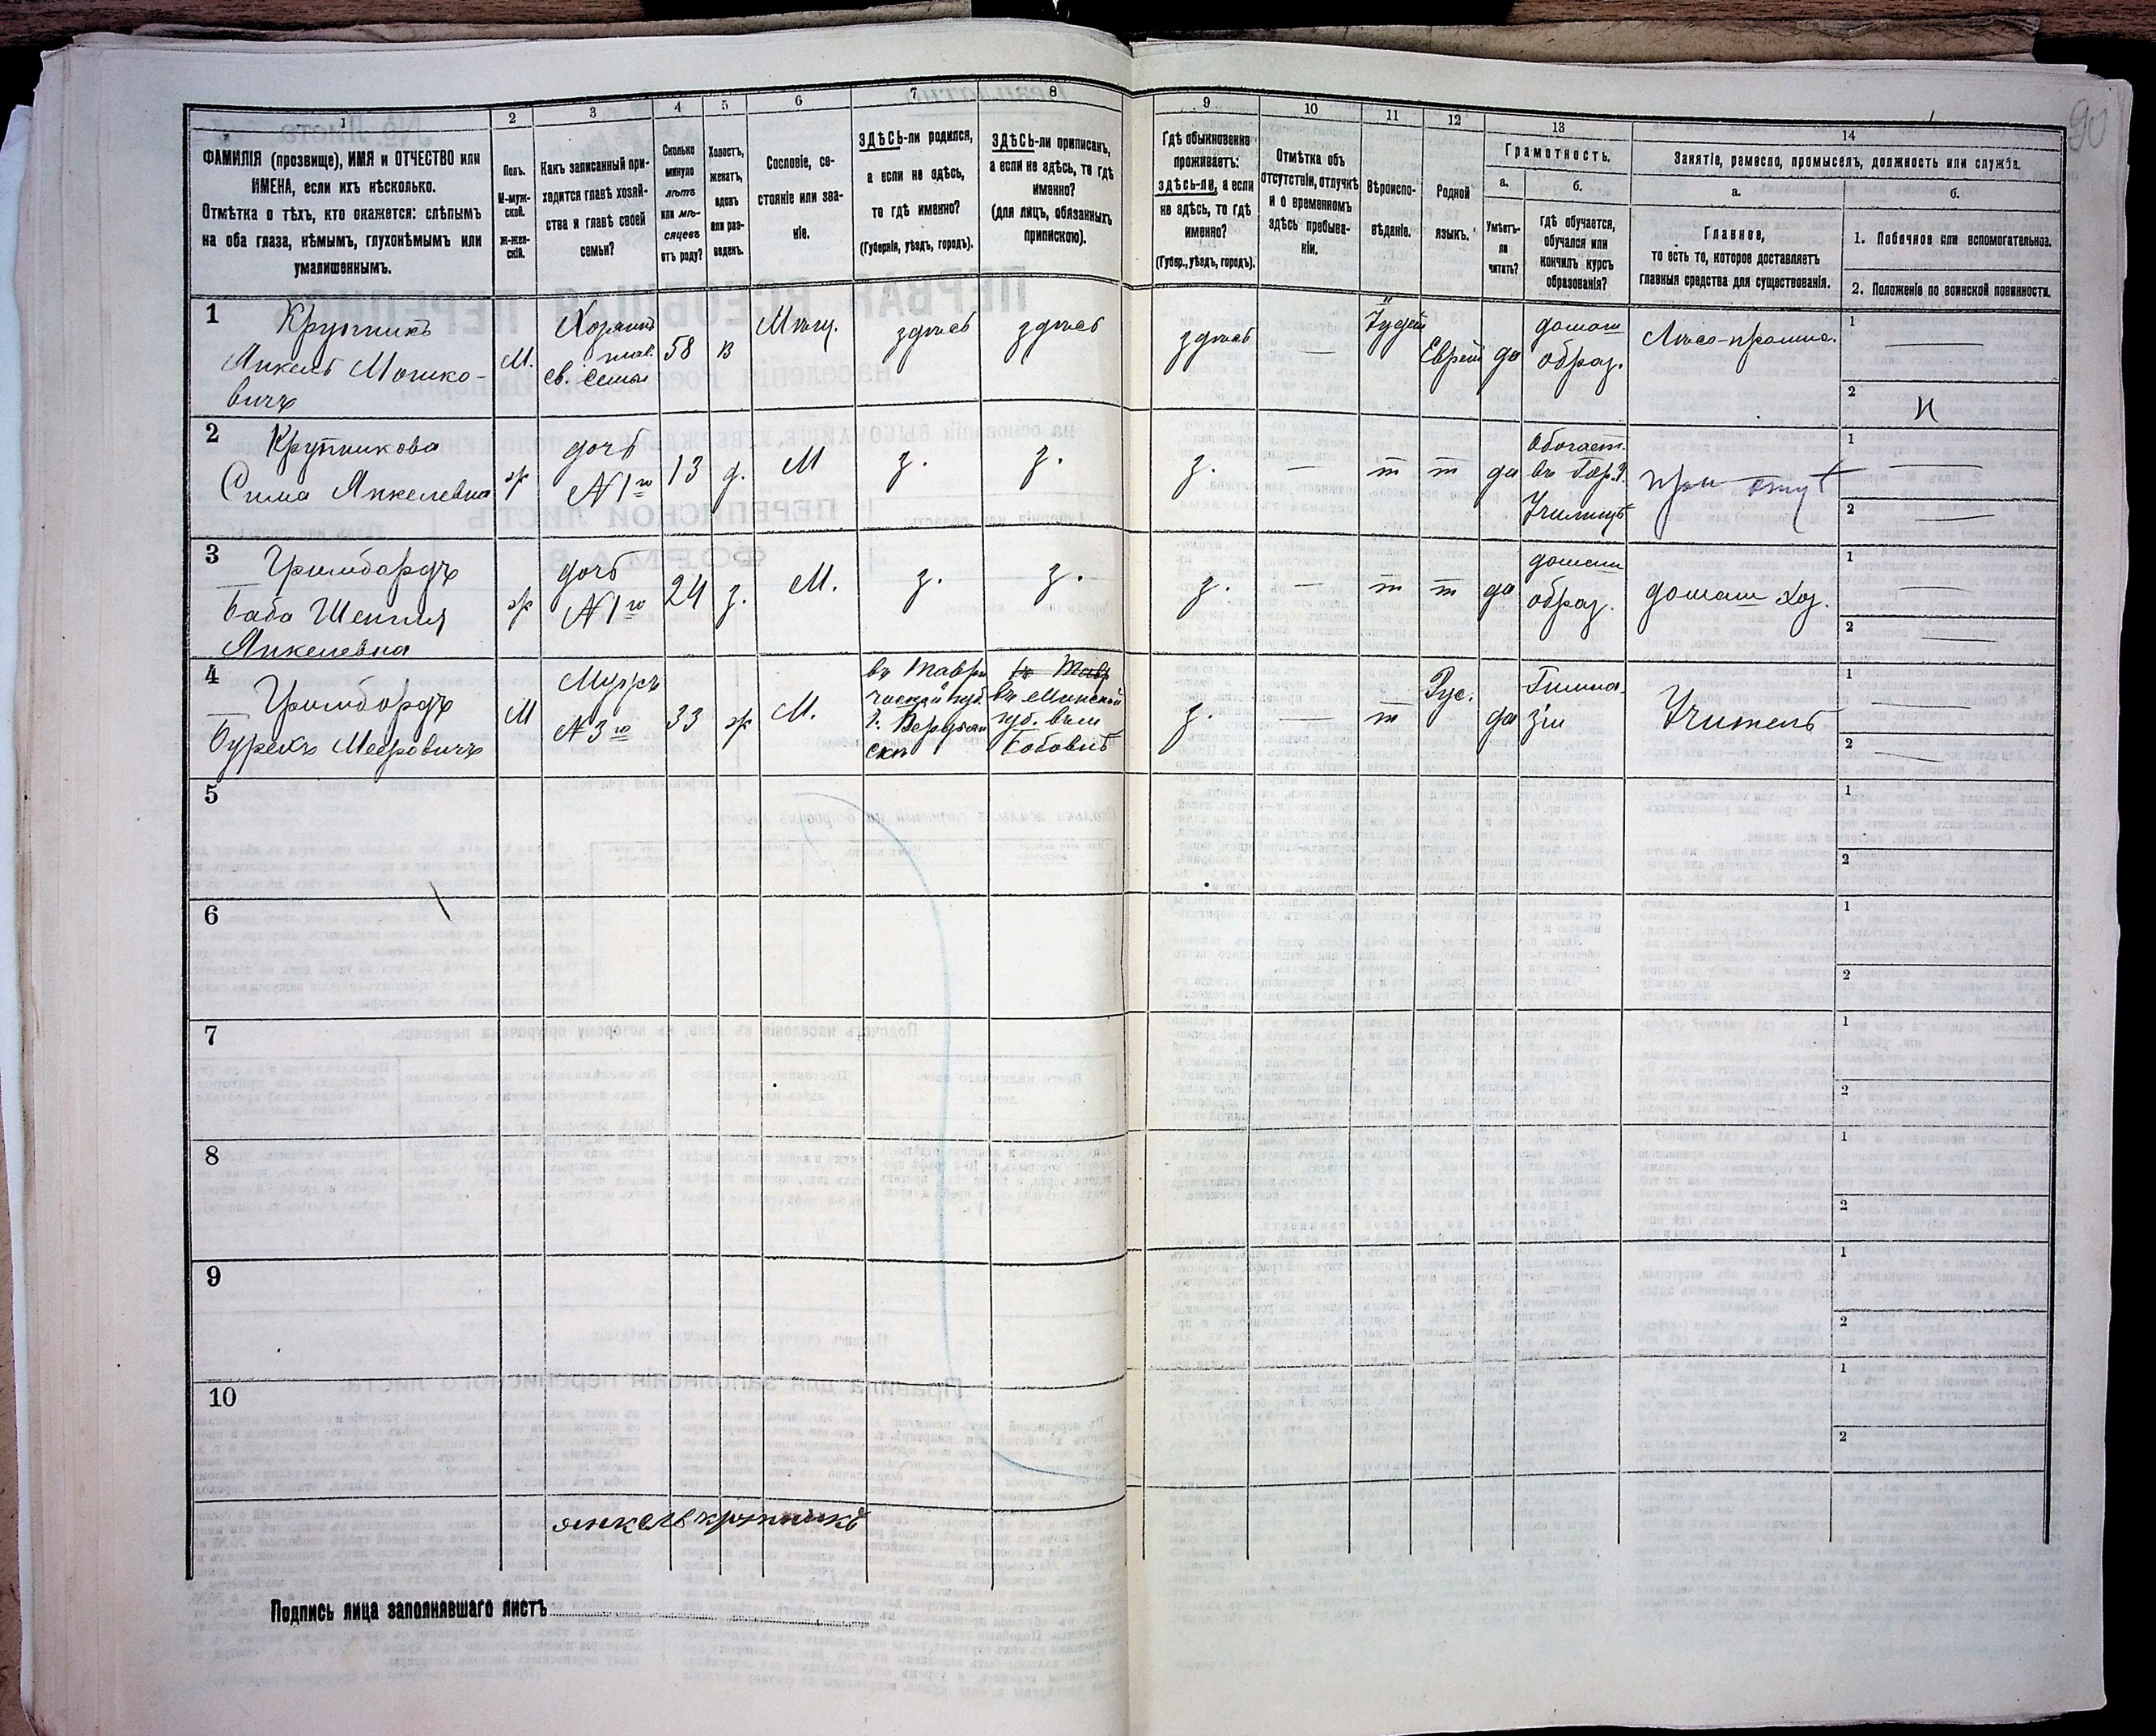 90
1 2 3 4 5 6 7 8 9 10 11 12 13 14
ФАМИЛІЯ (прозвище), ИМЯ и ОТЧЕСТВО или
ИМЕНА, если ихъ нѣсколько.
Отмѣтка о тѣхъ, кто окажется: слѣпымъ
на оба глаза, нѣмымъ, глухонѣмымъ или
умалишеннымъ.
Полъ.
М-муж-
ской.
Ж-жен-
скій.
Какъ записанный при-
ходится главѣ хозяй-
ства и главѣ своей
семьи?
Сколько
минуло
лѣтъ
или мѣ-
сяцевъ
отъ роду?
Холостъ,
женатъ,
вдовъ
или раз-
веденъ.
Сословіе, со-
стояніе или зва-
ніе.
ЗДѢСЬ-ли родился,
а если не здѣсь,
то гдѣ именно?
(Губернія, уѣздъ, городъ).
ЗДѢСЬ-ли приписанъ,
а если не здѣсь, то гдѣ
именно?
(для лицъ, обязанныхъ
припискою).
Гдѣ обыкновенно
проживаетъ:
здѣсь-ли, а если
не здѣсь, то гдѣ
именно?
(Губер., уѣздъ, городъ).
Отмѣтка объ
отсутствіи, отлучкѣ
и о временномъ
здѣсь пребыва-
ніи.
Вѣроиспо-
вѣданіе.
Родной
языкъ.
Грамотность.
а.
Умѣетъ-
ли
читать?
б.
Гдѣ обучается,
обучался или
кончилъ курсъ
образованія?
Занятіе, ремесло, промыселъ, должность или служба.
а.
Главное,
то есть то, которое доставляетъ
главныя средства для существованія.
б.
1. Побочное или вспомогательное.
2. Положеніе по воинской повинности.
1
Крупникъ
Янкель Мошко-
вичъ
М.
Хозяинъ
глав.
св. семьи
58
В
Мѣщ.
здѣсь
здѣсь
здѣсь
—
Іудей
Еврей
да
домаш
образ.
Лѣсо-промыш.
1 —
2 И
2
Крупникова
Сима Янкелевна
ж
дочь
№ 1го
13
д.
М
з.
з.
з.
—
т
т
да
Училищѣ
при отцѣ
1 —
2 —
3
Гримбардъ
Баба Шендля
Янкелевна
ж
дочь
№ 1го
24
з.
М.
з.
з.
з.
—
т
т
да
домаш
образ.
домаш хоз.
1 —
2 —
4
Гримбардъ
Бурехъ Мееровичъ
М
Мужъ
№ 3го
33
ж
М.
въ Таври
ческой губ.
г. Бердян
скъ
въ Тавр
въ Минской
губ. въ м
з.
—
т
Рус.
да
Гимна
зіи
Учитель
1 —
2 —
5 1 2
6 1 2
7 1 2
8 1 2
9 1 2
10 1 2
янкель крупникъ
Подпись лица заполнявшаго листъ